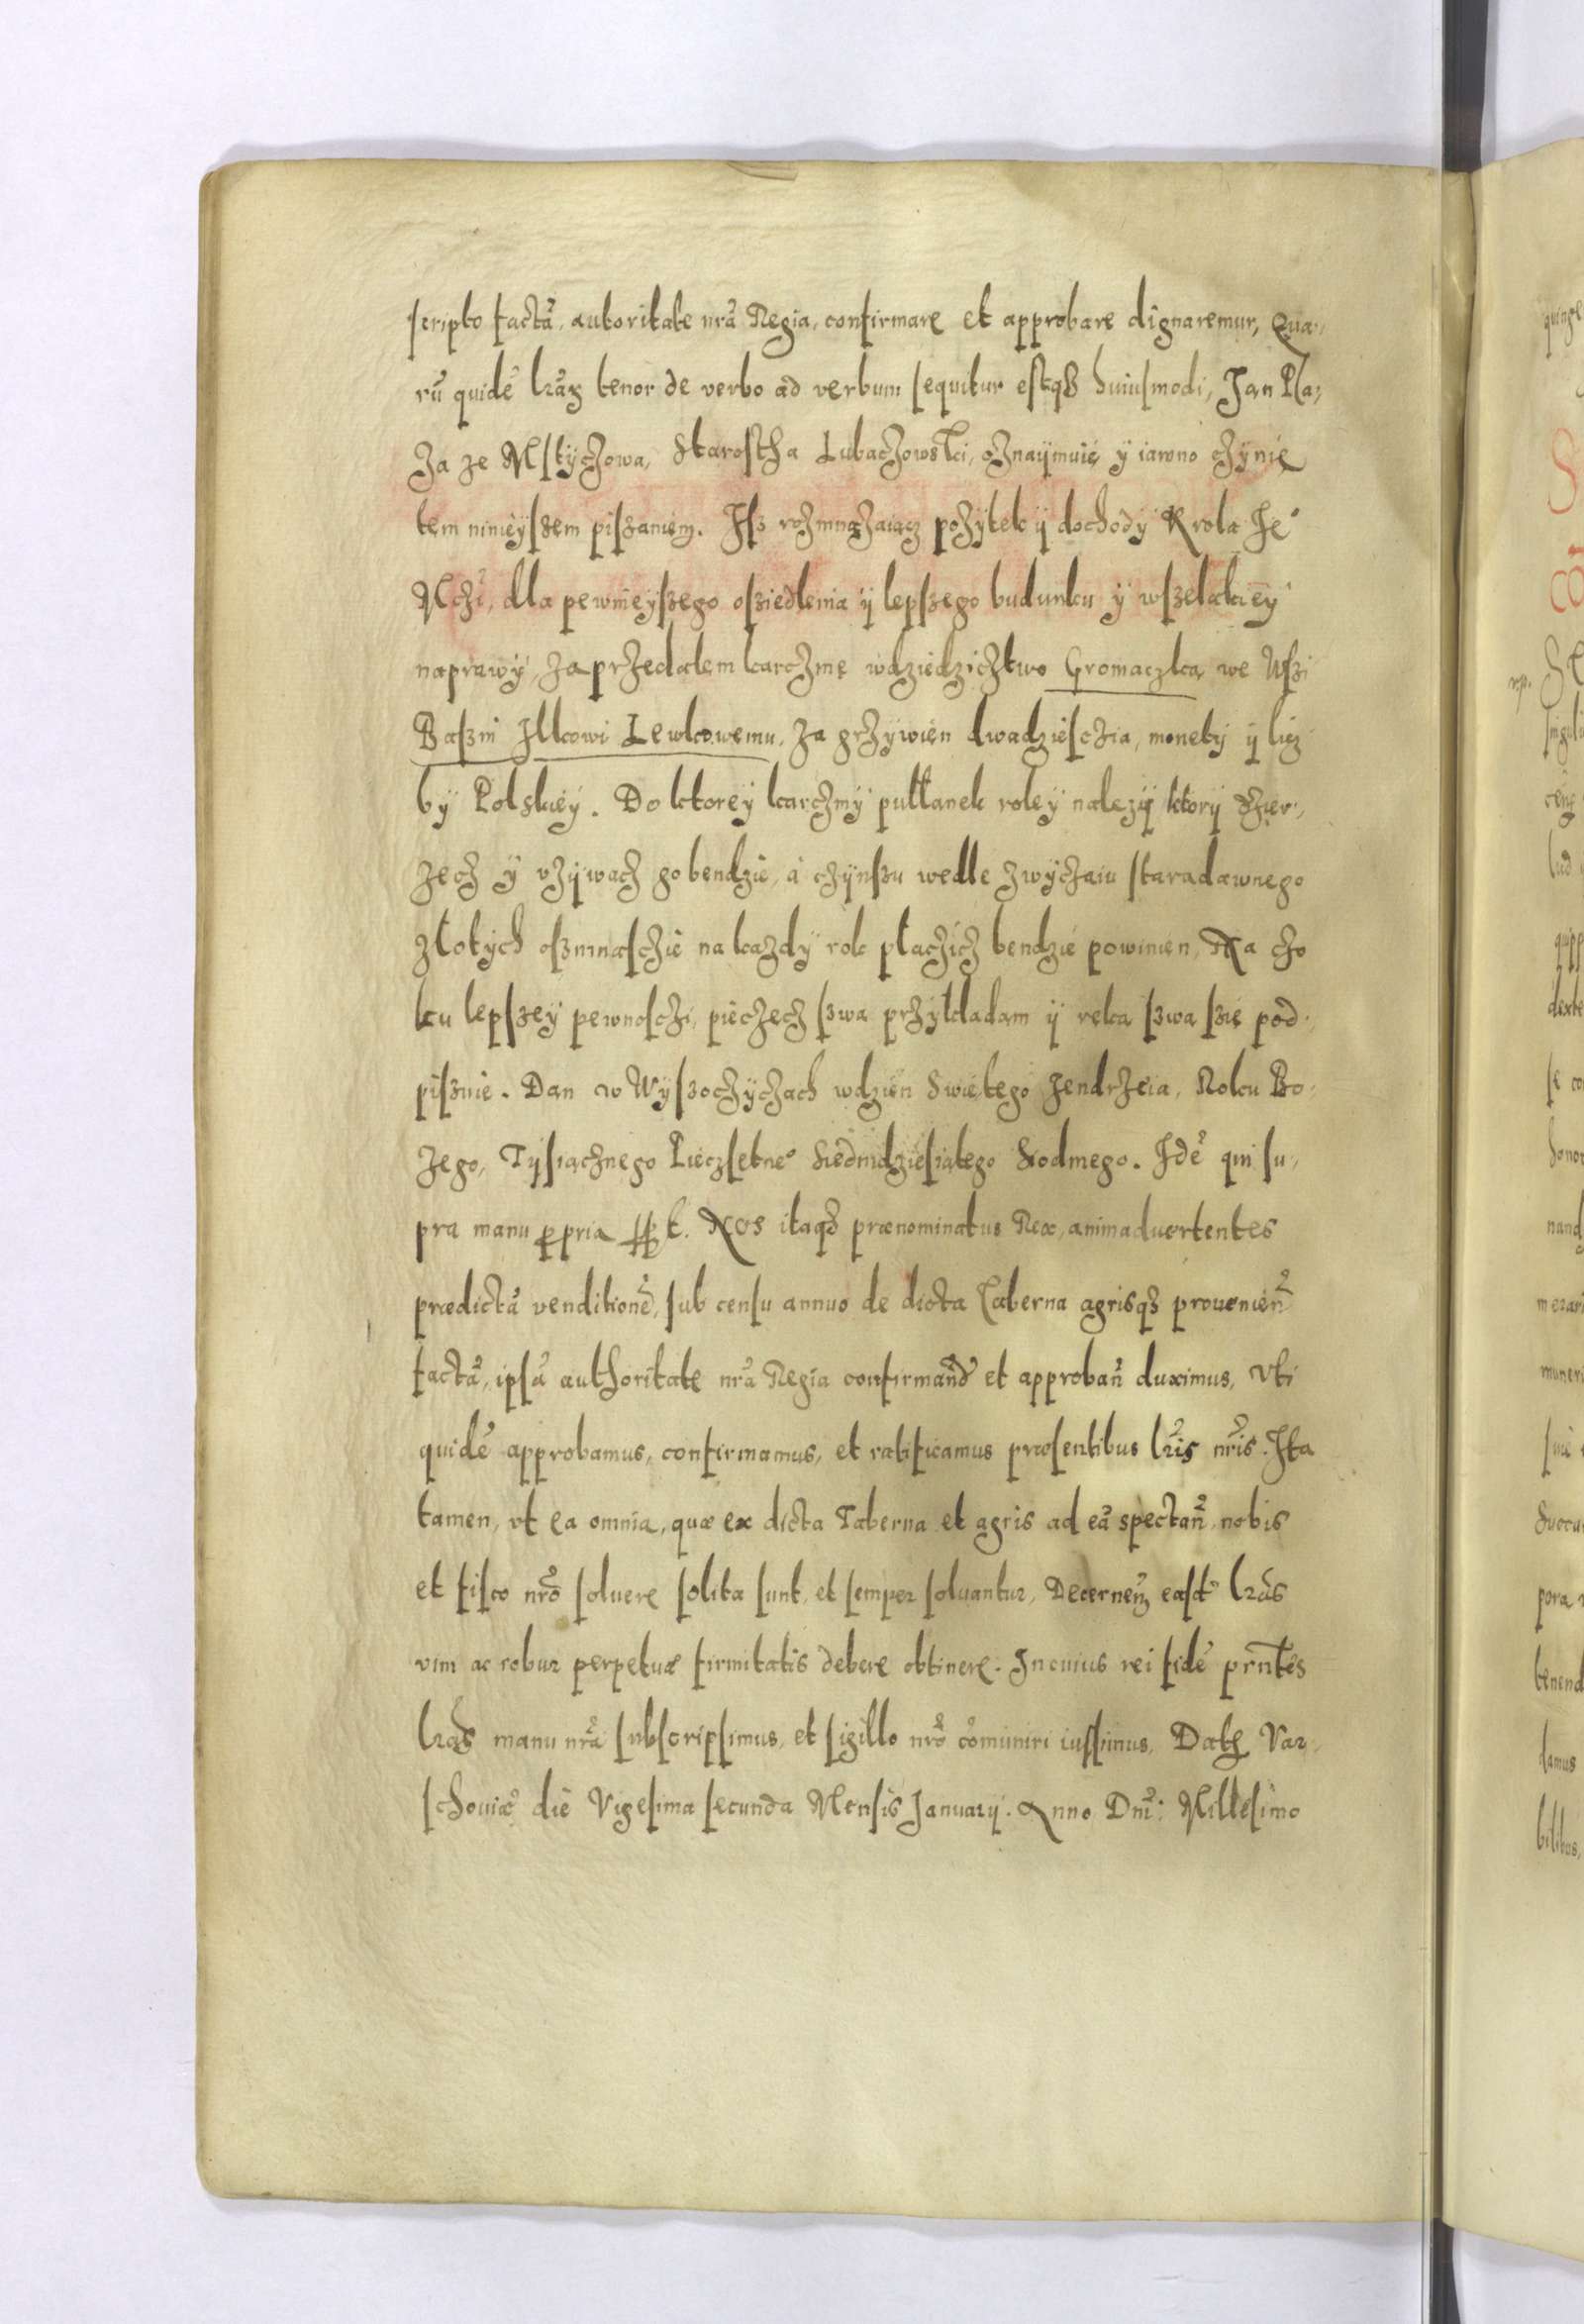 scripto factã, autoritate nrã Regia, confirmare et approbare dignaremur, Qua-
rũ quidẽ lrãꝝ tenor de verbo ad verbum sequitur estqꝫ huiusmodi, Jan Pla-
za ze Mstÿczowa, Starostha Lubaczowski, oznaÿmuię ÿ iawno czÿnię
tem ninieÿszem piszaniem. Isz rozmnazaiącz pozÿtek ÿ dochodÿ Krola Jeº
Mczi, dla pewnieÿszego osziedlenia ÿ lepszego budunku ÿ wszelakieÿ
naprawÿ, zaprzedalem karczmę wdziedzicztwo Gromaczką we Wszi
Baszni Ilkowi Lewkowemu, za grzÿwien dwadziesczia, monetÿ ÿ licz
bÿ Polskieÿ. Do ktoreÿ karczmÿ pułlanek roleÿ nalezÿ ktorÿ dzier-
zecz ÿ vzÿwacz go bendzie, a czÿnszu wedle zwÿczaiu staradawnego
złotÿch oszmnasczie na kazdÿ rok płaczicz bendzie powinien, Na czo
ku lepszeÿ pewnosczi, pieczecz szwa przÿkladam ÿ reką szwą szię pod-
piszuie. Dan w Wÿszoczÿczach wdzien Swiętego Jendrzeia, Roku Bo-
zego, Tÿsiącznego Pieczsetneº Siedmdziesiątego Siodmego. Idẽ qui su-
pra manu ꝓpria sspt. Nos itaqꝫ prænominatus Rex, animaduertentes
prædictã venditionẽ, sub censu annuo de dicta Taberna agrisqꝫ prouenieñ
factã, ipsã authoritate nrã Regia confirmañd et approbañ duximus, Vti
quidẽ approbamus, confirmamus, et ratificamus præsentibus lrĩs nrĩs. Ita
tamen, vt ea omnia, quæ ex dicta Taberna et agris ad eã spectañ, nobis
et fisco nrõ soluere solita sunt, et semper soluantur, Decerneñ easd lrãs
vim ac robur perpetuæ firmitatis debere obtinere. In cuius rei fidẽ prñtes
lrãs manu nrã subscripsimus, et sigillo nrõ cõmuniri iussimus, Datꝭ Var-
schouiæ die Vigesima secunda Mensis Januarÿ. Anno Dnĩ: Millesimo